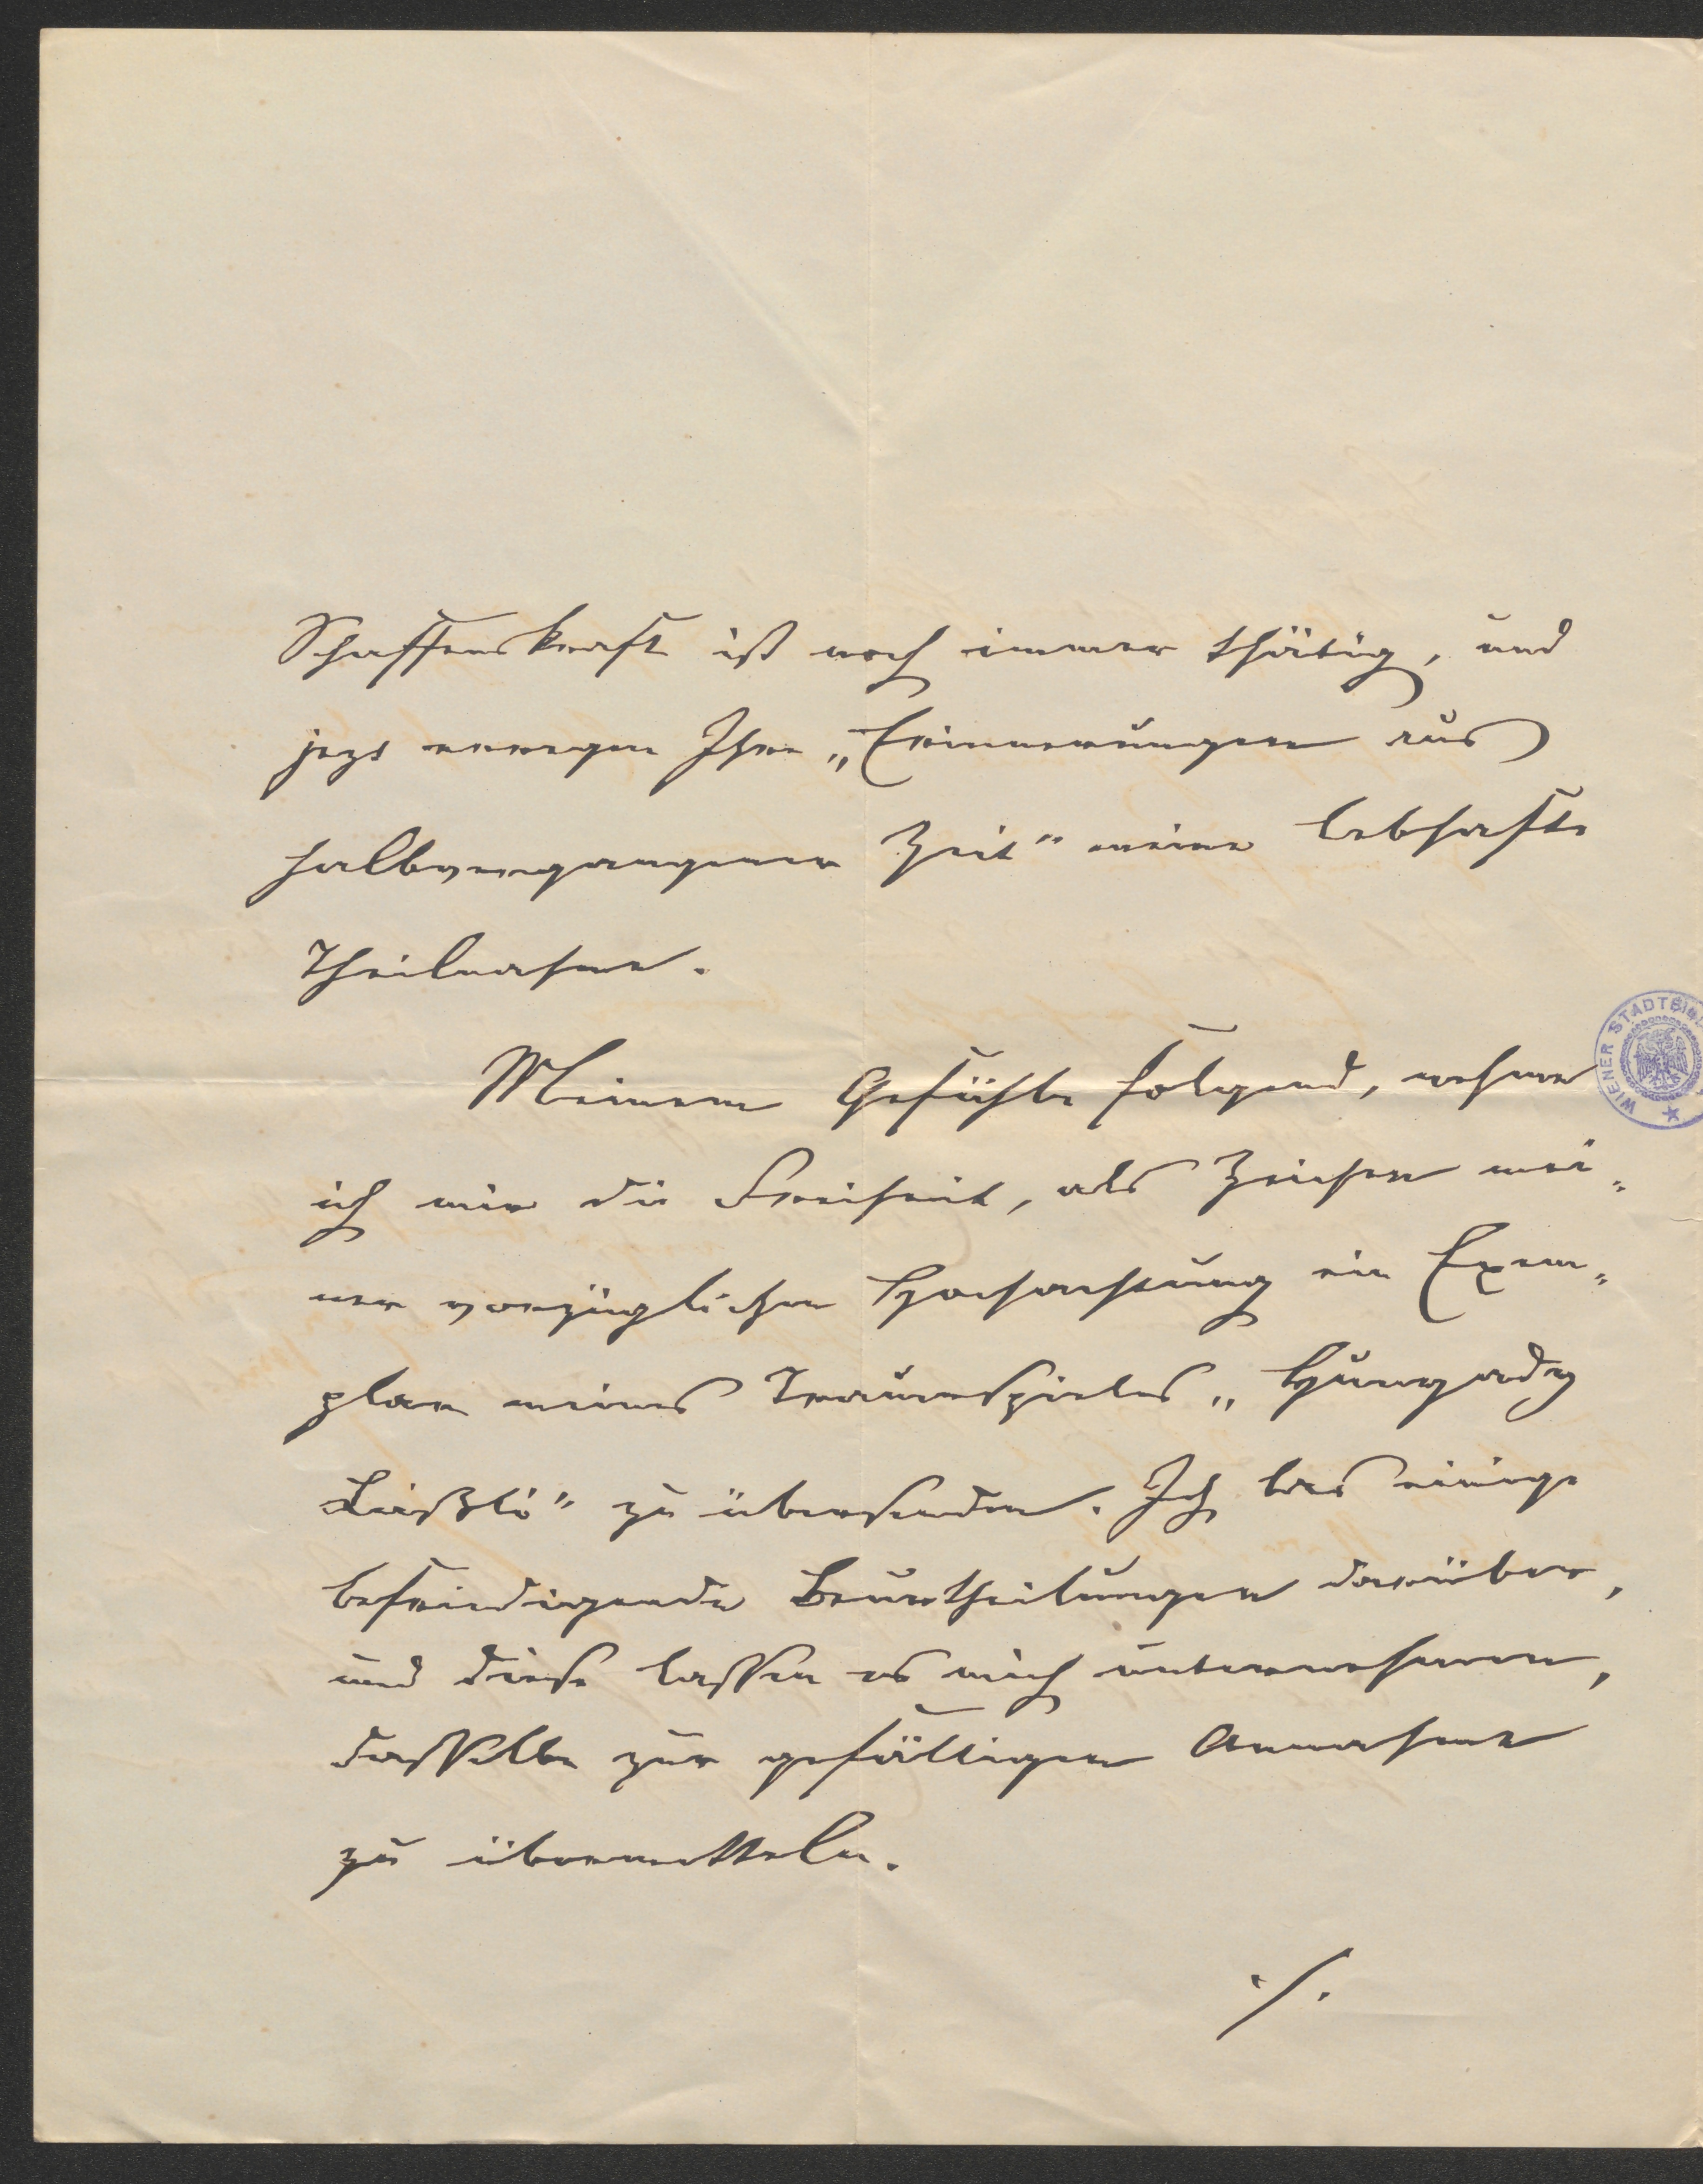 Schaffenskraft ist noch immer thätig, und
jezt erregen Ihre „Erinnerungen aus
halbvergangener Zeit" meine lebhafte
Theilnahme.
Meinem Gefühle folgend, nehme
ich mir die Freiheit, als Zeichen mei„
ner vorzüglichen Hochachtung ein Exem„
plar meines Trauerspieles „Hunyady
László" zu übersenden. Ich las einige
befriedigende Beurtheilungen darüber,
und diese lassen es mich unternehmen,
dasselbe zur gefälligen Annahme
zu übermitteln.
./.
WIENER STADTBI